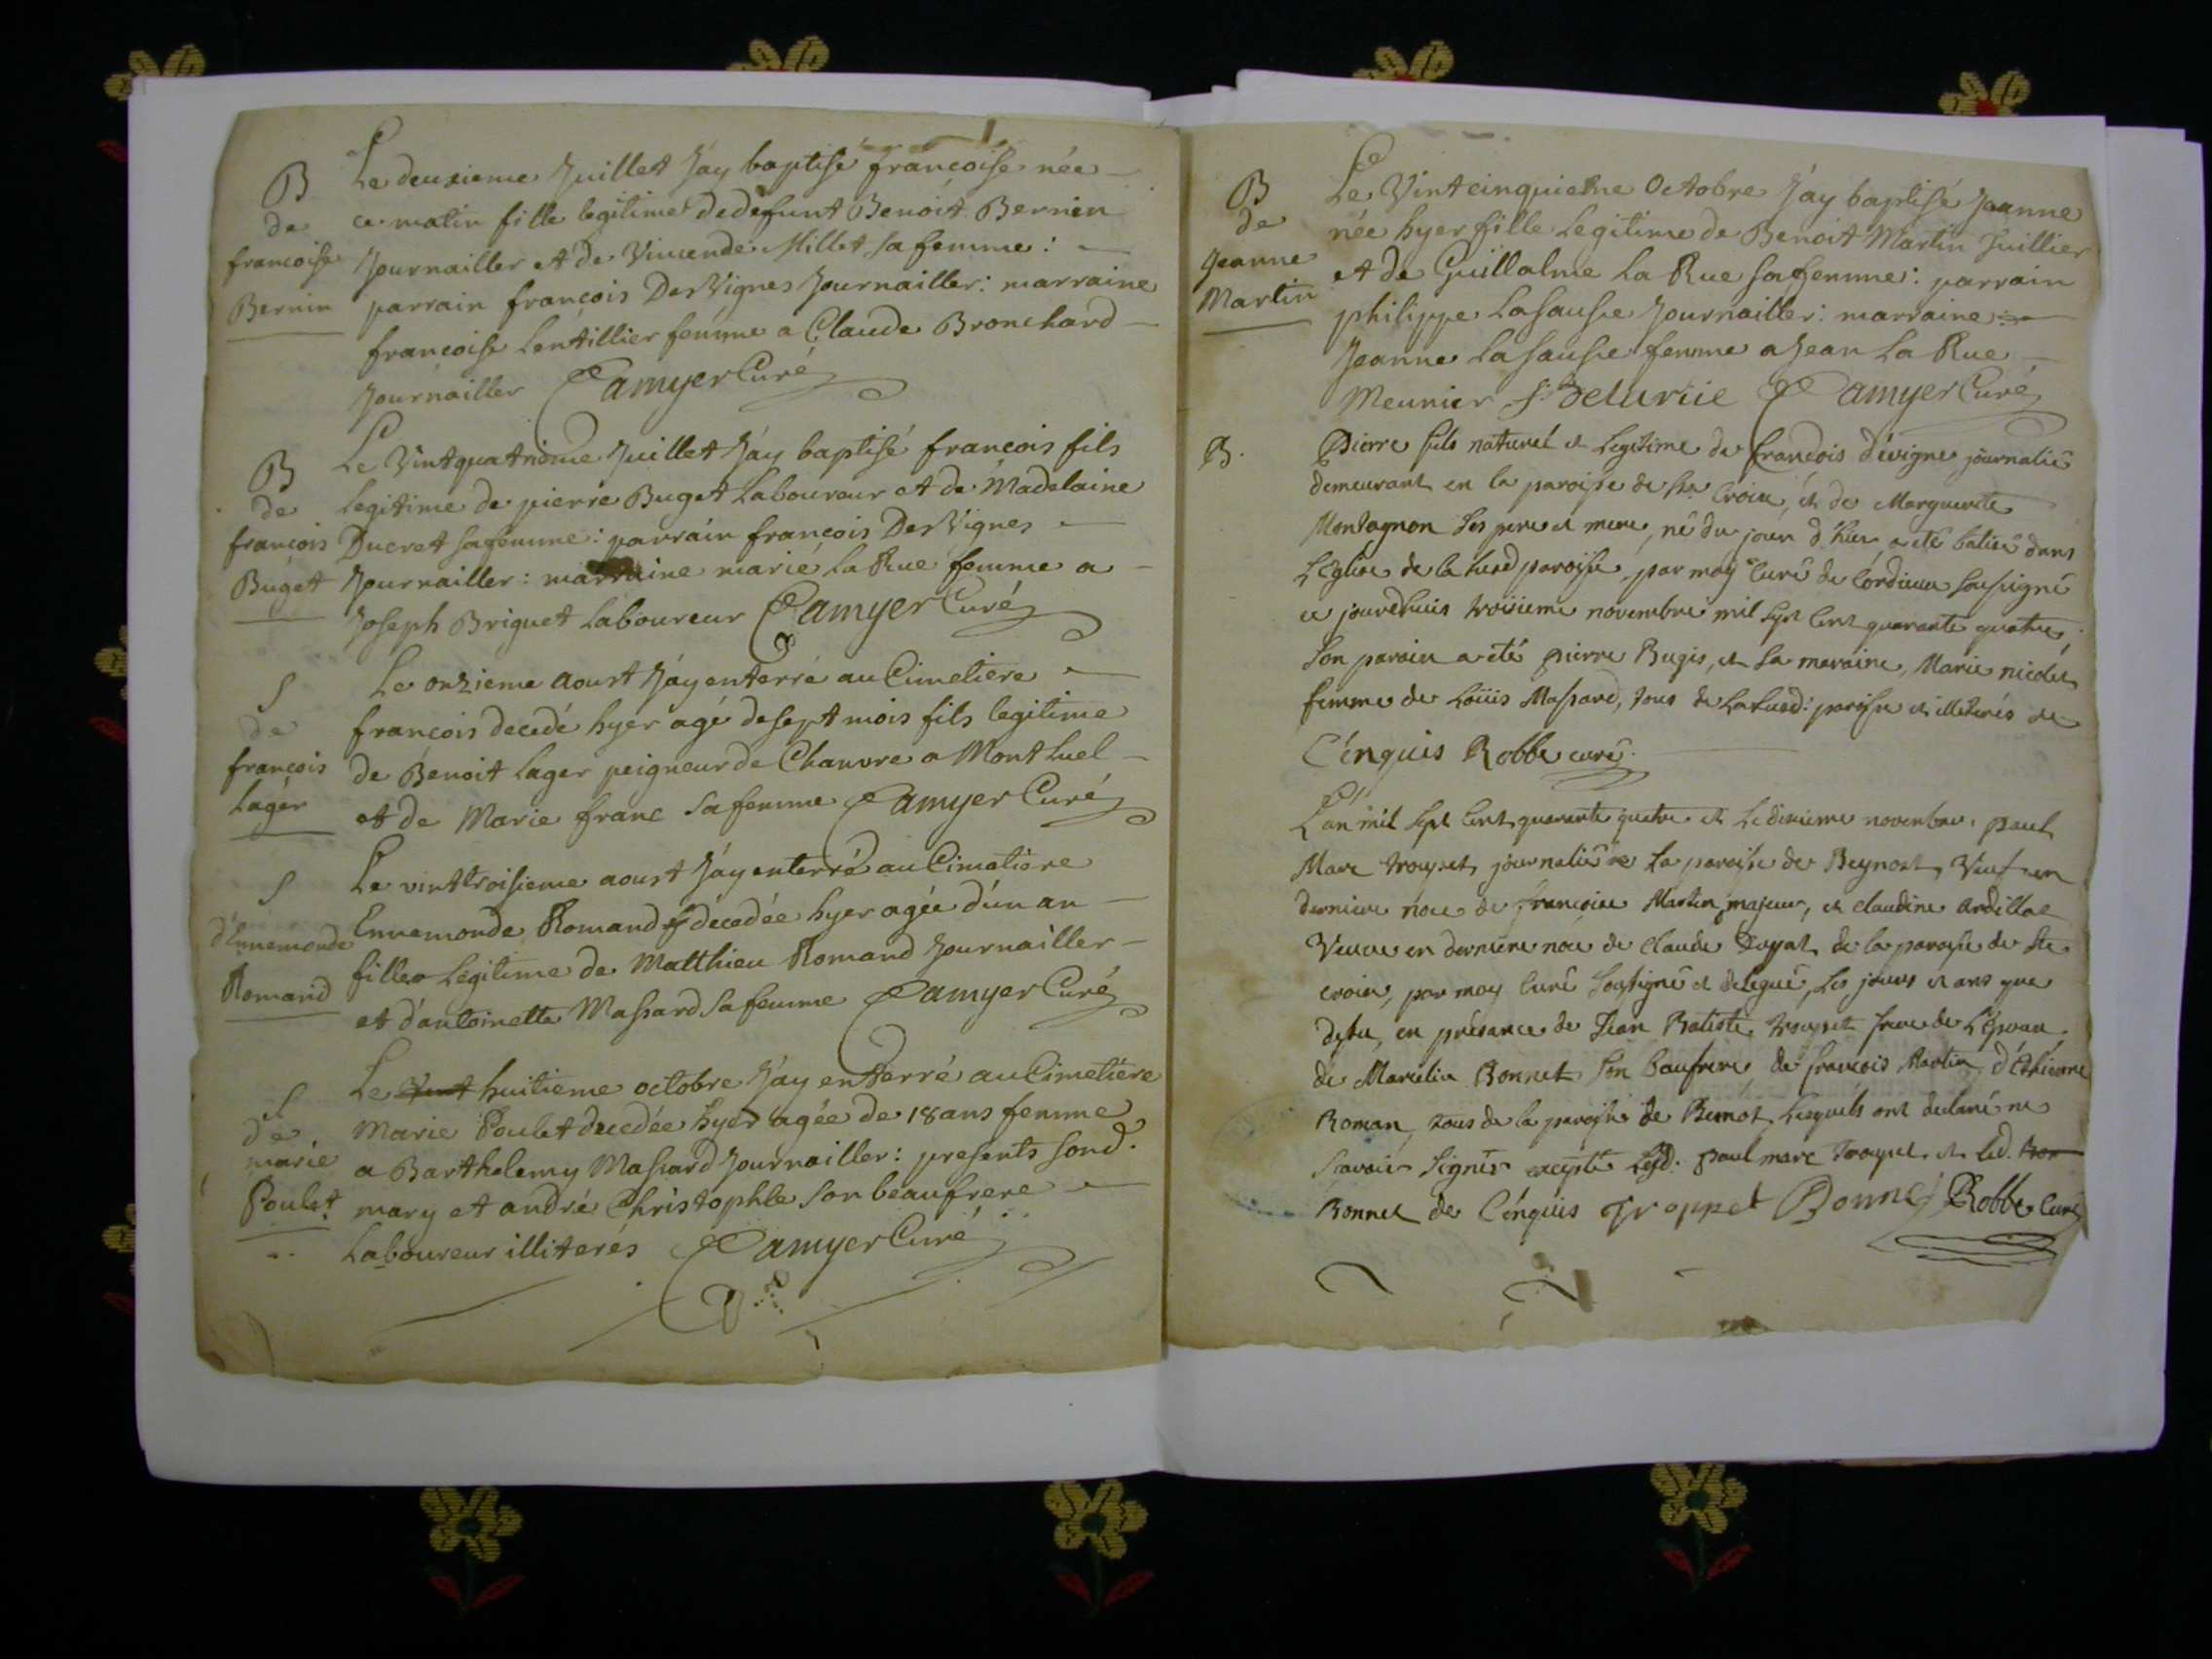 B
de
francoise
Bernin
Le deuxieme Juillet J'ay baptisé françoise née
ce matin fille legitime de defunt Benoit Bernin
Journailler et de Vincende Millet sa femme :
parrain françois DesVignes Journailler : marraine
françoise Lentillier femme a Claude Bronchard
Journailler Camyer Curé
B
de
françois
Buget
Le Vintquatrième Juillet J'ay baptisé françois fils
legitime de pierre Buget Laboureur et de Madelaine
Ducret sa femme : parrain françois DesVignes
Journailler : marraine marie La Rue femme a
Joseph Briguet Laboureur Camyer Curé
S
de
françois
Lager
Le onzieme aoust J'ay enterré au Cimetiere
françois decedé hyer agé de sept mois fils legitime
de Benoit Lager peigneur de Chanvre a Montluel
et de Marie franc sa femme Camyer Curé
S
d'Ennemonde
Romand
Le vinttroisieme aoust J'ay enterré au Cimetiere
Ennemonde Romand decedée hyer agée d'un an
fille legitime de Matthieu Romand Journailler
et d'antoinette Massard sa femme Camyer Curé
S
de
marie
Poulet
Le vint huitieme octobre J'ay enterré au Cimetiére
Marie Poulet decedée hyer agée de 18 ans femme
a Barthelemy Massard Journailler : presents sond.
mary et andré Christophle son beaufrere
Laboureur illiterés Camyer Curé
B
de
Jeanne
Martin
Le Vintcinquieme Octobre J'ay baptisé Jeanne
née hyer fille legitime de Benoit Martin
et de Guillalme La Rue sa femme : parrain
philippe Lasausse Journailler : marraine :
Jeanne Lasausse femme a Jean La Rue
Meunier Delarüe Camyer Curé
B.
Pierre fils naturel et legitime de francois dévigne journalié
demeurant en la paroisse de Ste Croix, et de Marguerite
Montagnon ses pere et mere, né du jour d'hier a été batisé dans
L'Eglise de la susd paroisse, par moy Curé de Cordieux soussigné
ce jourdhuis troisieme novembre mil sept cent quarante quatre,
Son parain a été pierre Bugis, et sa maraine, Marie nicolet
femme de Loüis Massard, tous de la susd: paroisse et illiterés de
C'enquis Robbe curé.
L'an mil sept cent quarante quatre et le dixieme novembre, paul
Marc troppet journalié de la paroisse de Beynost, Veuf en
derniere noce de francoise Martin majeur, et claudine
Veuve en derniere noce de claude de la paroisse de Ste
croix, par moy Curé soussigné et delegué, les jours et ans que
dessu, en présance de Jean Batiste troppet frere de L'epoux
de Marcelin Bonnet son beaufrere de francois Martin d'Ethienne
Roman, tous de la paroisse de Beinot, lesquels ont declaré ne
scavoir signer excepté lesd. paul marc Troppet et led. Bon
Bonnet de C'enquis Troppet Bonnet Robbe Curé